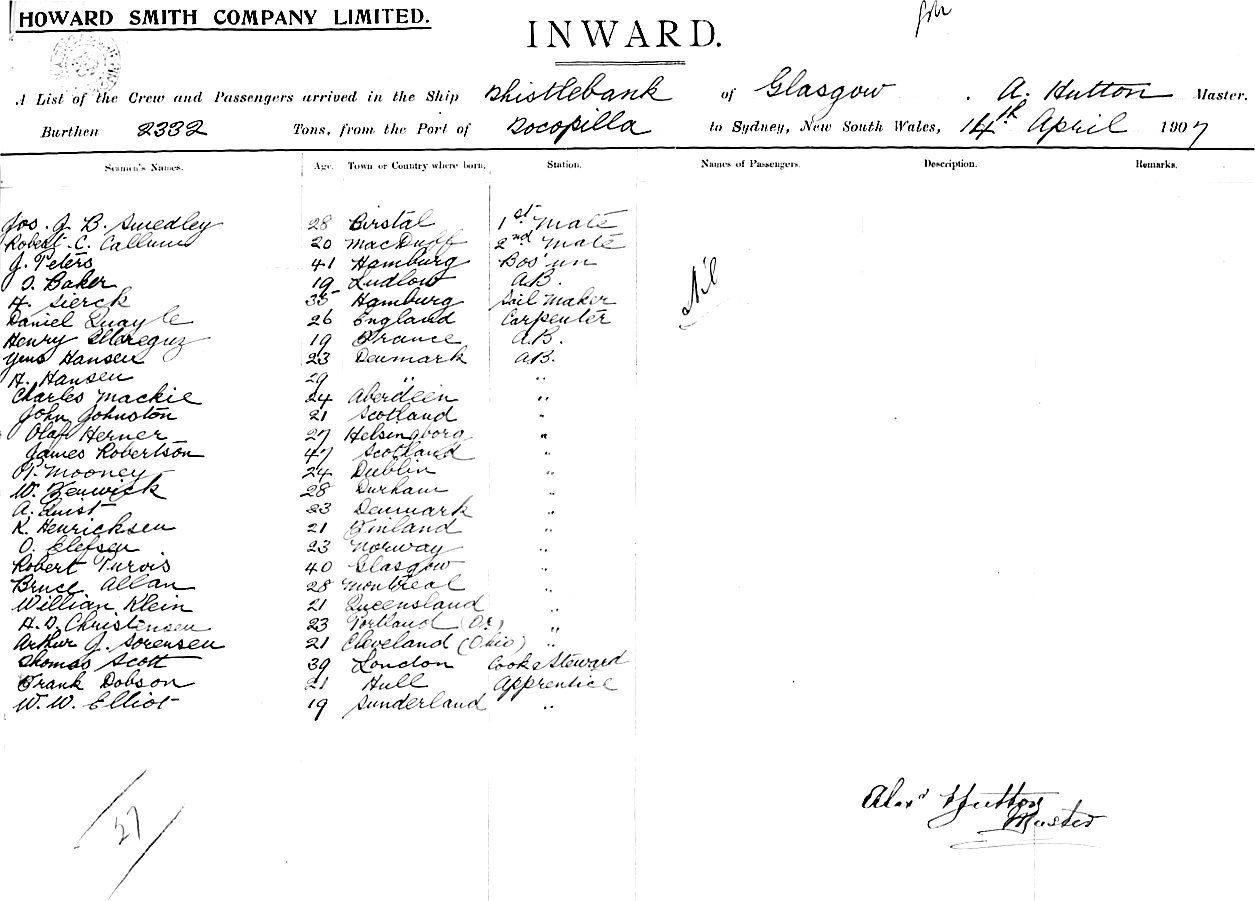 HOWARD SMITH COMPANY LIMITED.
INWARD.
A List of the Crew and Passengers arrived in the Ship Thistlebank of Glasgow . A. Hutton Master.
Burthen 2332 Tons, from the Port of Tocopilla to Sydney, New South Wales, 14th April 1907
Seamen's Names. Age. Town or Country where born, Station. Names of Passengers. Description. Remarks.
Jos. J. B. Smedley 28 Birstal 1st Mate
Robert C. Callum 20 MacDuff 2nd Mate
J. Peters 41 Hamburg Bos'un
O. Baker 19 Ludlow A.B.
H. Sierck 35 Hamburg Sail Maker
Nil
Daniel Quayle 26 England Carpenter
Henry 19 France A.B.
Yens Hansen 23 Denmark A.B.
H. Hansen 29 " "
Charles Mackie 24 Aberdeen "
John Johnston 21 Scotland "
Olaf Herner 27 Helsingborg "
James Robertson 47 Scotland "
P. Mooney 24 Dublin "
W. Fenwick 28 Durham "
A. Quist 23 Denmark "
K. Henricksen 21 Finland "
O. Elefsen 23 Norway "
Robert Purvis 40 Glasgow "
Bruce Allan 28 Montreal "
William Klein 21 Queensland "
H. D. Christensen 23 Portland (Or.) "
Arthur J. Sorensen 21 Cleveland (Ohio) "
Thomas Scott 39 London Cook & Steward
Frank Dobson 21 Hull Apprentice
W. W. Elliot 19 Sunderland "
27
Alexr Hutton
Master